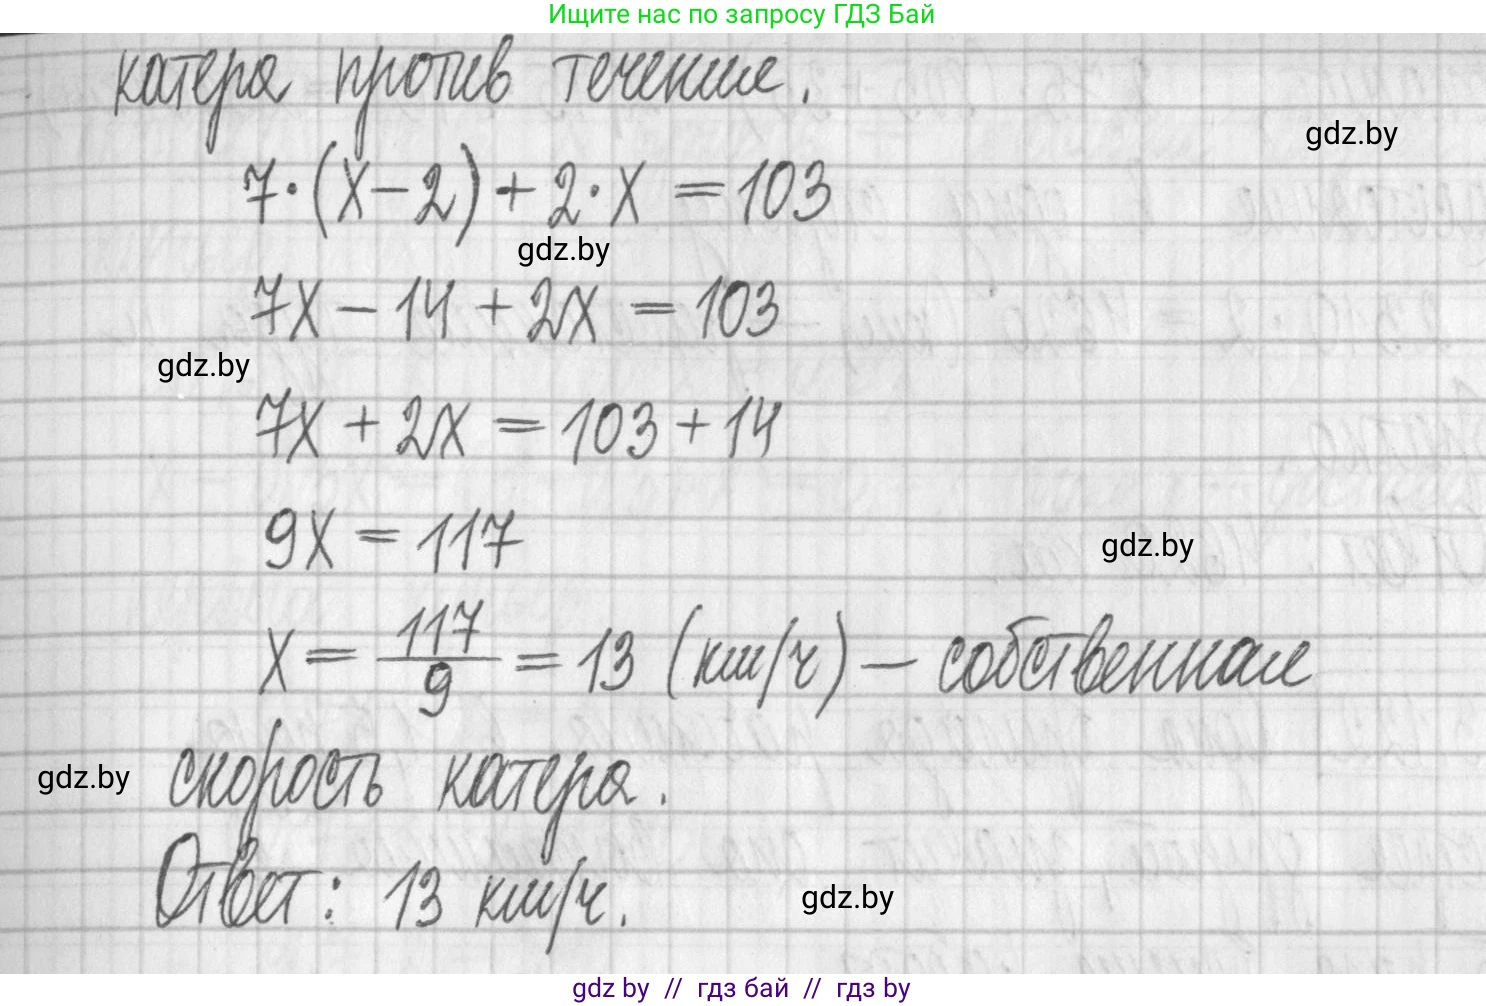 Ищите нас по запросу ГДЗ Бай
катера против течения.
gdz.by
7·(x-2)+2·x=103
gdz.by
7x-14+2x=103
gdz.by
7x+2x=103+14
9x=117
gdz.by
x=117/9=13 (км/ч) – собственная
gdz.by скорость катера.
Ответ: 13 км/ч.
gdz.by
gdz by // гдз бай // гдз by